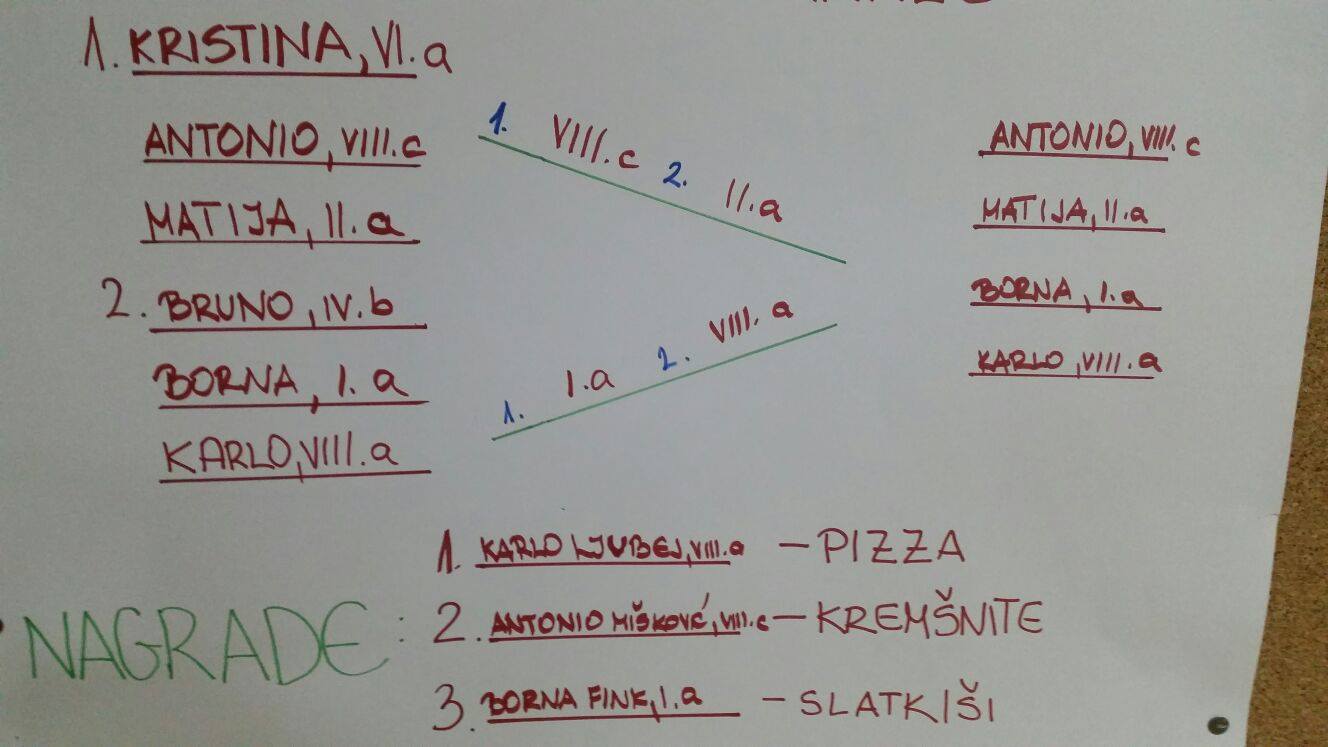 1. KRISTINA, VI.a
ANTONIO, VIII.c
MATIJA, II.a
2. BRUNO, IV.b
BORNA, I.a
KARLO, VIII.a
1. VIII.c 2. II.a
1. I.a 2. VIII.a
ANTONIO, VIII.c
MATIJA, II.a
BORNA, I.a
KARLO, VIII.a
NAGRADE:
1. KARLO LJUBEJ, VIII.a – PIZZA
2. ANTONIO MIŠKOVĆ, VIII.c – KREMŠNITE
3. BORNA FINK, I.a – SLATKIŠI